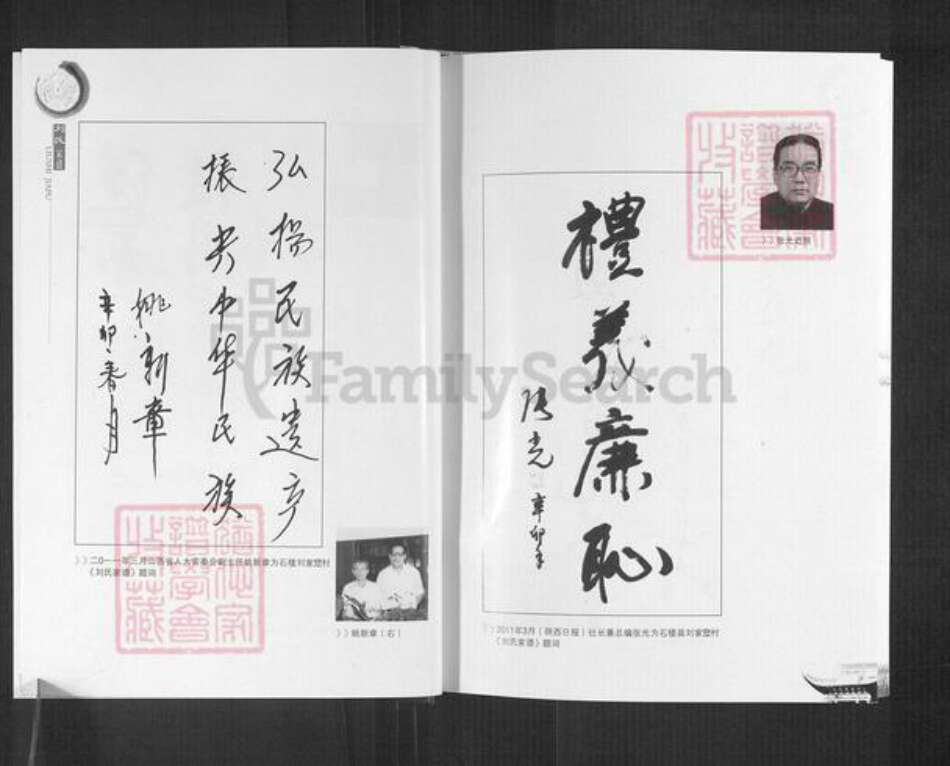 刘氏家谱
LIUSHI JIAPU
弘扬民族遗产
振兴中华民族
姚新章
辛卯·春月
>>二0一一年三月山西省人大常委会副主任姚新章为石楼刘家塔村
《刘氏家谱》题词
>>姚新章（右）
禮義廉恥
张光
辛卯年
>>2011年3月《陕西日报》社长兼总编张光为石楼县刘家塔村
《刘氏家谱》题词
FamilySearch